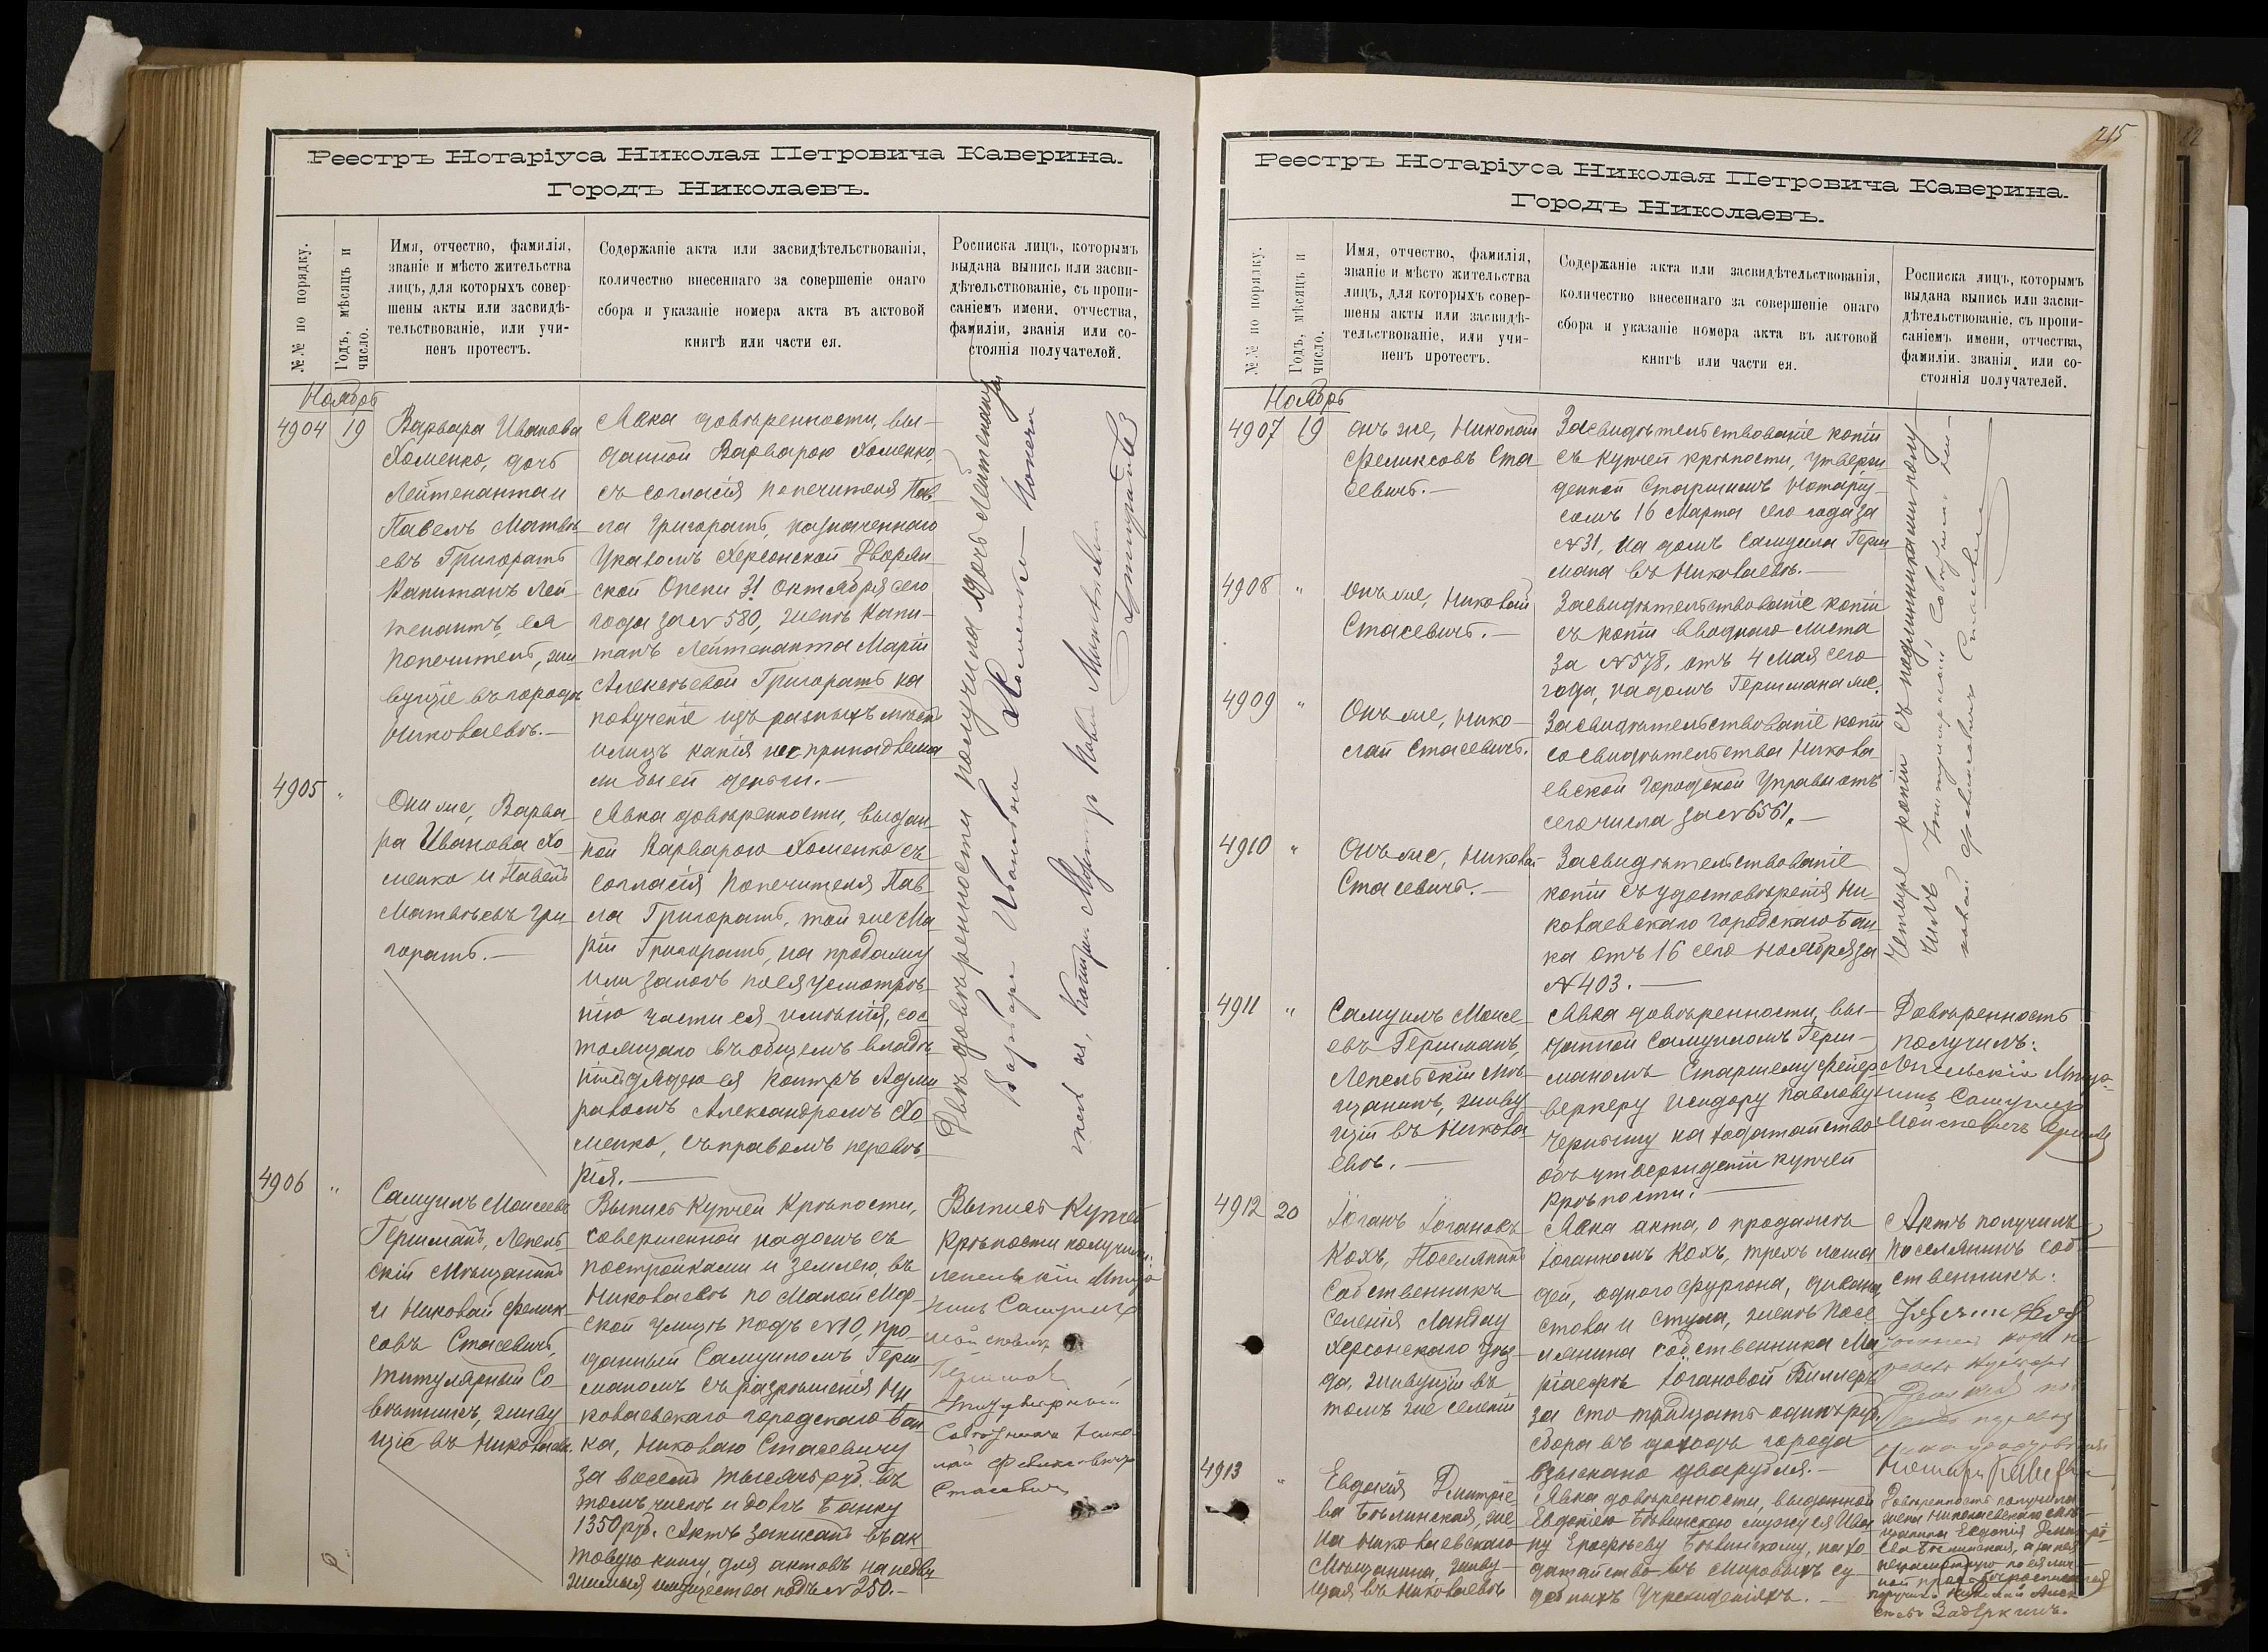 Реестръ Нотаріуса Николая Петровича Каверина.
Городъ Николаевъ.
№№ по порядку.
Годъ, мѣсяцъ и
число.
Имя, отчество, фамилія,
званіе и мѣсто жительства
лицъ, для которыхъ совер-
шены акты или засвидѣ-
тельствованіе, или учи-
ненъ протестъ.
Содержаніе акта или засвидѣтельствованія,
количество внесеннаго за совершеніе онаго
сбора и указаніе номера акта въ актовой
книгѣ или части ея.
Росписка лицъ, которымъ
выдана выпись или засви-
дѣтельствованіе, съ пропи-
саніемъ имени, отчества,
фамиліи, званія или со-
стоянія получателей.
Ноябрь
4904
19
Варвара Иванова
Хоменко, дочь
Лейтенанта и
Павелъ Матвѣ-
евъ Григорашъ
Капитанъ Лей-
тенантъ, ея
попечитель, жи-
вущіе въ городѣ
Николаевѣ.—
Явка довѣренности, вы-
данной Варварою Хоменко,
съ согласія попечителя Пав-
ла Григорашъ, назначеннаго
Указомъ Херсонской Дворян-
ской Опеки 31 Октября сего
года за № 580, женѣ Капи-
танъ Лейтенанта Маріи
Алексѣевой Григорашъ на
полученіе изъ разныхъ мѣстъ
и лицъ какія не принадлежа-
ли бы ей деньги.—
4905
"
Они же, Варва-
ра Иванова Хо-
менко и Павелъ
Матвѣевъ Гри-
горашъ.—
Явка довѣренности, выдан-
ной Варварою Хоменко съ
согласія попечителя Пав-
ла Григорашъ, той же Ма-
ріи Григорашъ, на продажу
или залогъ по ея усмотрѣ-
нію части ея имѣнія, сос-
тоящаго въ общемъ владѣ-
ніи съ дядею ея Контръ Адми-
раломъ Александромъ Хо-
менко, съ правомъ передовѣ-
рія.—
Двѣ довѣренности получила дочь Лейтенанта
Варвара Ивановна Хоменко — Попечи-
тель ея,
4906
"
Самуилъ Моисеевъ
Гершманъ, Лепель-
скій Мѣщанинъ
и Николай Феликсовъ
Стасевичъ,
Титулярный Со-
вѣтникъ, живу-
щіе въ Николаевѣ.
Выпись Купчей Крѣпости,
совершенной на домъ съ
постройками и землею, въ
Николаевѣ по Малой Мор-
ской улицѣ подъ № 10, про-
данный Самуиломъ Герш-
маномъ съ разрѣшенія Ни-
колаевскаго городскаго Бан-
ка, Николаю Стасевичу
за восемь тысячъ руб. въ
томъ числѣ и долгъ Банку
1350 руб. Актъ записанъ въ ак-
товую книгу, для актовъ на недви-
жимыя имущества подъ № 250.—
Выпись Купчей
Крѣпости получили:
Лепельскій Мѣща-
нинъ Самуилъ
Гершманъ
Титулярный
Совѣтникъ Нико-
лай Феликсовичъ
Стасевичъ
215
Реестръ Нотаріуса Николая Петровича Каверина.
Городъ Николаевъ.
№№ по порядку.
Годъ, мѣсяцъ и
число.
Имя, отчество, фамилія,
званіе и мѣсто жительства
лицъ, для которыхъ совер-
шены акты или засвидѣ-
тельствованіе, или учи-
ненъ протестъ.
Содержаніе акта или засвидѣтельствованія,
количество внесеннаго за совершеніе онаго
сбора и указаніе номера акта въ актовой
книгѣ или части ея.
Росписка лицъ, которымъ
выдана выпись или засви-
дѣтельствованіе, съ пропи-
саніемъ имени, отчества,
фамиліи, званія или со-
стоянія получателей.
Ноябрь
4907
19
Онъ же, Николай
Феликсовъ Ста-
севичъ.—
Засвидѣтельствованіе копіи
съ купчей крѣпости, утверж-
денной Старшимъ Нотаріу-
сомъ 16 Марта сего года за
№ 31, на домъ Самуила Герш-
мана въ Николаевѣ.—
4908
"
Онъ же, Николай
Стасевичъ.—
Засвидѣтельствованіе копіи
съ копіи вводнаго листа
за № 578, отъ 4 Мая сего
года, на домъ Гершмана же.
4909
"
Онъ же, Нико-
лай Стасевичъ.
Засвидѣтельствованіе копіи
со свидѣтельства Никола-
евской Городской Управы отъ
сего числа за № 6561.—
4910
"
Онъ же, Николай
Стасевичъ.—
Засвидѣтельствованіе
копіи съ удостовѣренія Ни-
колаевскаго городскаго Бан-
ка отъ 16 сего Ноября за
№ 403.—
Четыре копіи съ подлинниками полу-
чилъ Титулярный Совѣтникъ Ни-
колай Феликсовичъ Стасевичъ
4911
"
Самуилъ Моисе-
евъ Гершманъ,
Лепельскій Мѣ-
щанинъ, живу-
щій въ Никола-
евѣ.—
Явка довѣренности, вы-
данной Самуиломъ Герш-
маномъ Старшему Фейер-
веркеру Исидору Павлову
на ходатайство
объ утвержденіи купчей
крѣпости.—
Довѣренность
получилъ:
Лепельскій Мѣща-
нинъ Самуилъ
4912
20
Іоганъ Іогановъ
Кохъ, Поселянинъ
Собственникъ
селенія Ландау
Херсонскаго уѣз-
да, живущій въ
томъ же селеніи
Явка акта, о продажѣ
Іоганномъ Кохъ, трехъ лоша-
дей, одного фургона, дивана,
стола и стула, женѣ посе-
лянина собственника Ма-
Іогановой Биллеръ
за сто тридцать одинъ руб.
сбора въ доходъ города
взыскано два рубля.—
Актъ получилъ
поселянинъ соб-
ственникъ:
4913
"
Евдокія Дмитріе-
ва Бѣлинская, же-
на Николаевскаго
Мѣщанина, живу-
щая въ Николаевѣ
Явка довѣренности, выданной
Евдокіею Бѣлинскою мужу ея Ива-
ну Ерофѣеву Бѣлинскому, на хо-
датайство въ Мировыхъ су-
дебныхъ учрежденіяхъ.—
Довѣренность получила
жена Николаевскаго мѣ-
щанина Евдокія Дмитрі-
ева Бѣлинская, а за нея
неграмотную по ея лич-
ной просьбѣ росписался